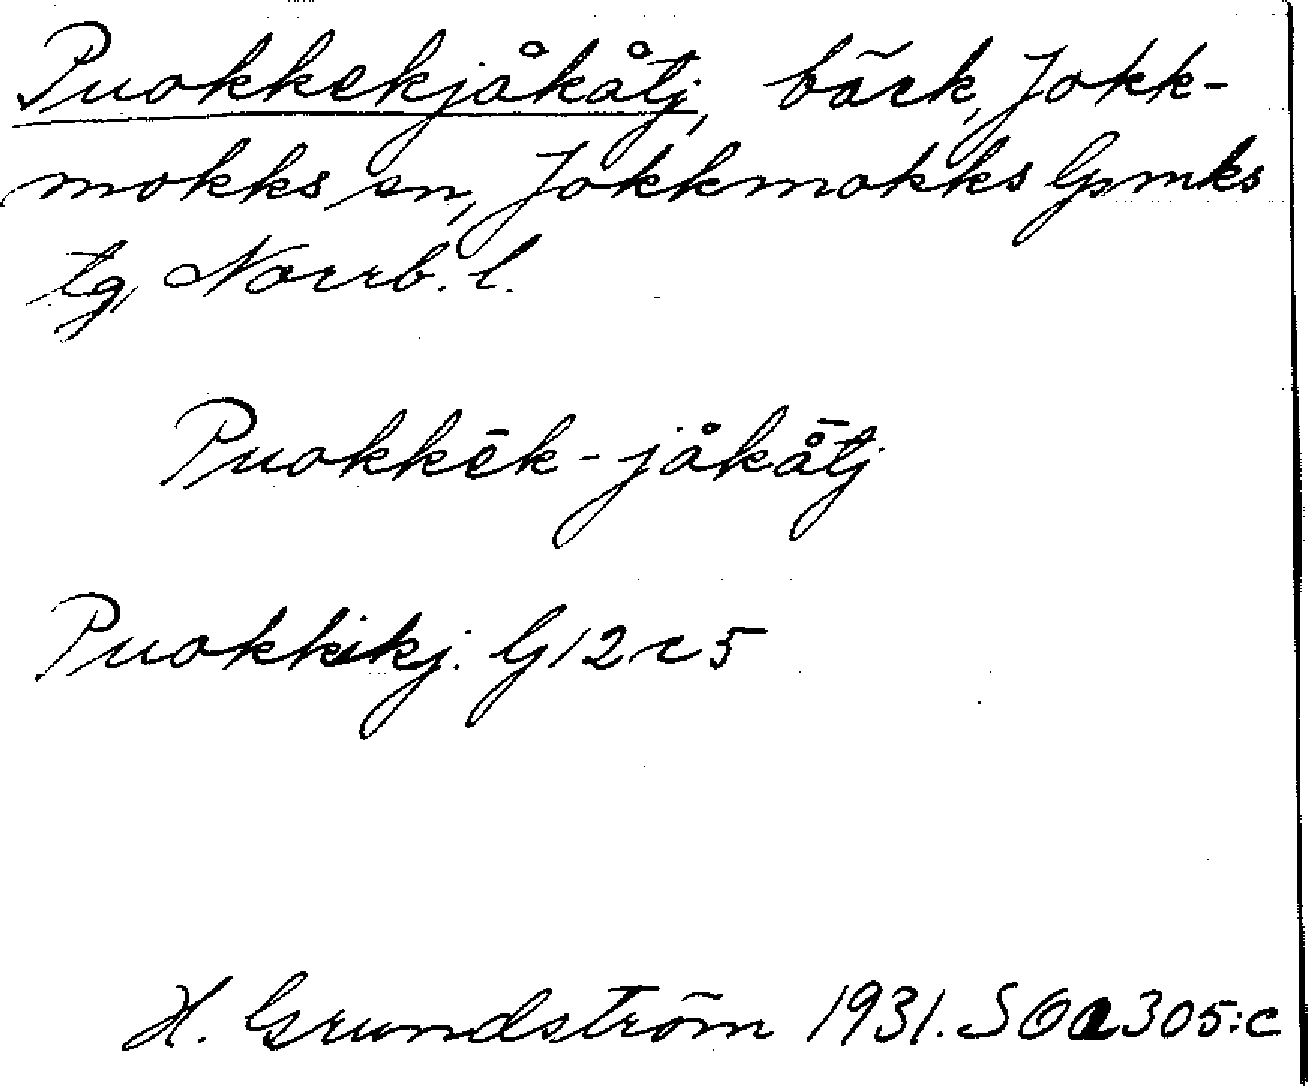 Puokkekjåkåtj, bäck, Jokk-
mokks sn, Jokkmokks lpmks
tg, Norrb. l.
Puokkēk-jåkå̄tj
Puokkikj. G12c5
H. Grundström 1931. SOa305:c